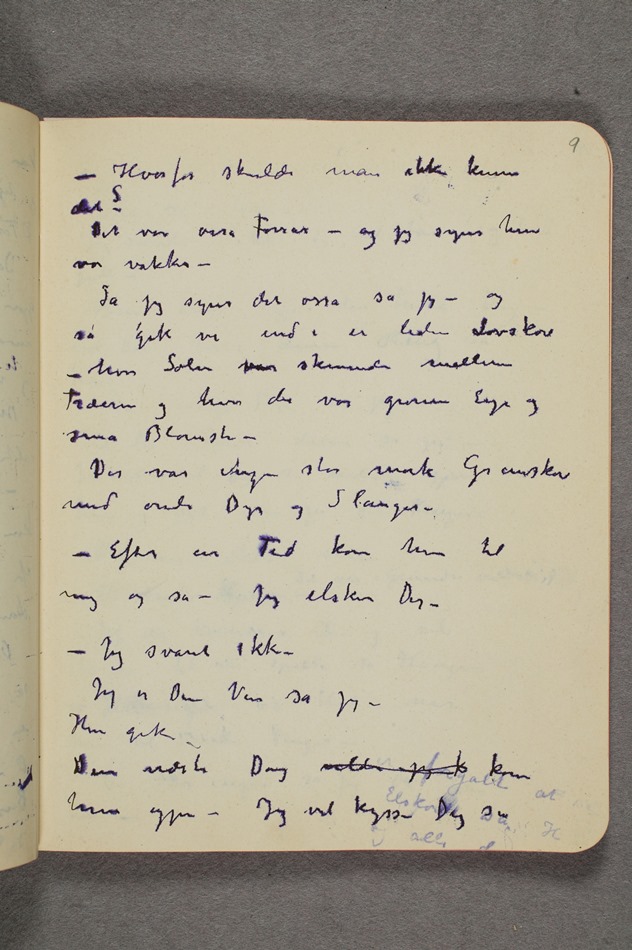 9
– Hvorfor skulde man ikke kunne
det?
Det var ossa Foraar – og jeg synes hun
var vakker –
Ja jeg synes det ossa sa jeg – og
så gik vi ind i en liden Løvskov
– hvor Solen skinnende mellem
Træerne og hvor der var grønne Enge og
små Blomster –
Der var ingen stor mørk Granskov
med onde Dyr og Slanger –
– Efter en Tid kom hun til
mig og sa – Jeg elsker Dig –
– Jeg svarte ikke –
Jeg er Din Ven sa jeg –
Hun gik –
Den næste Dag kom
hun igjen – Jeg vil kysse Dig sa
at
Elskov
alle